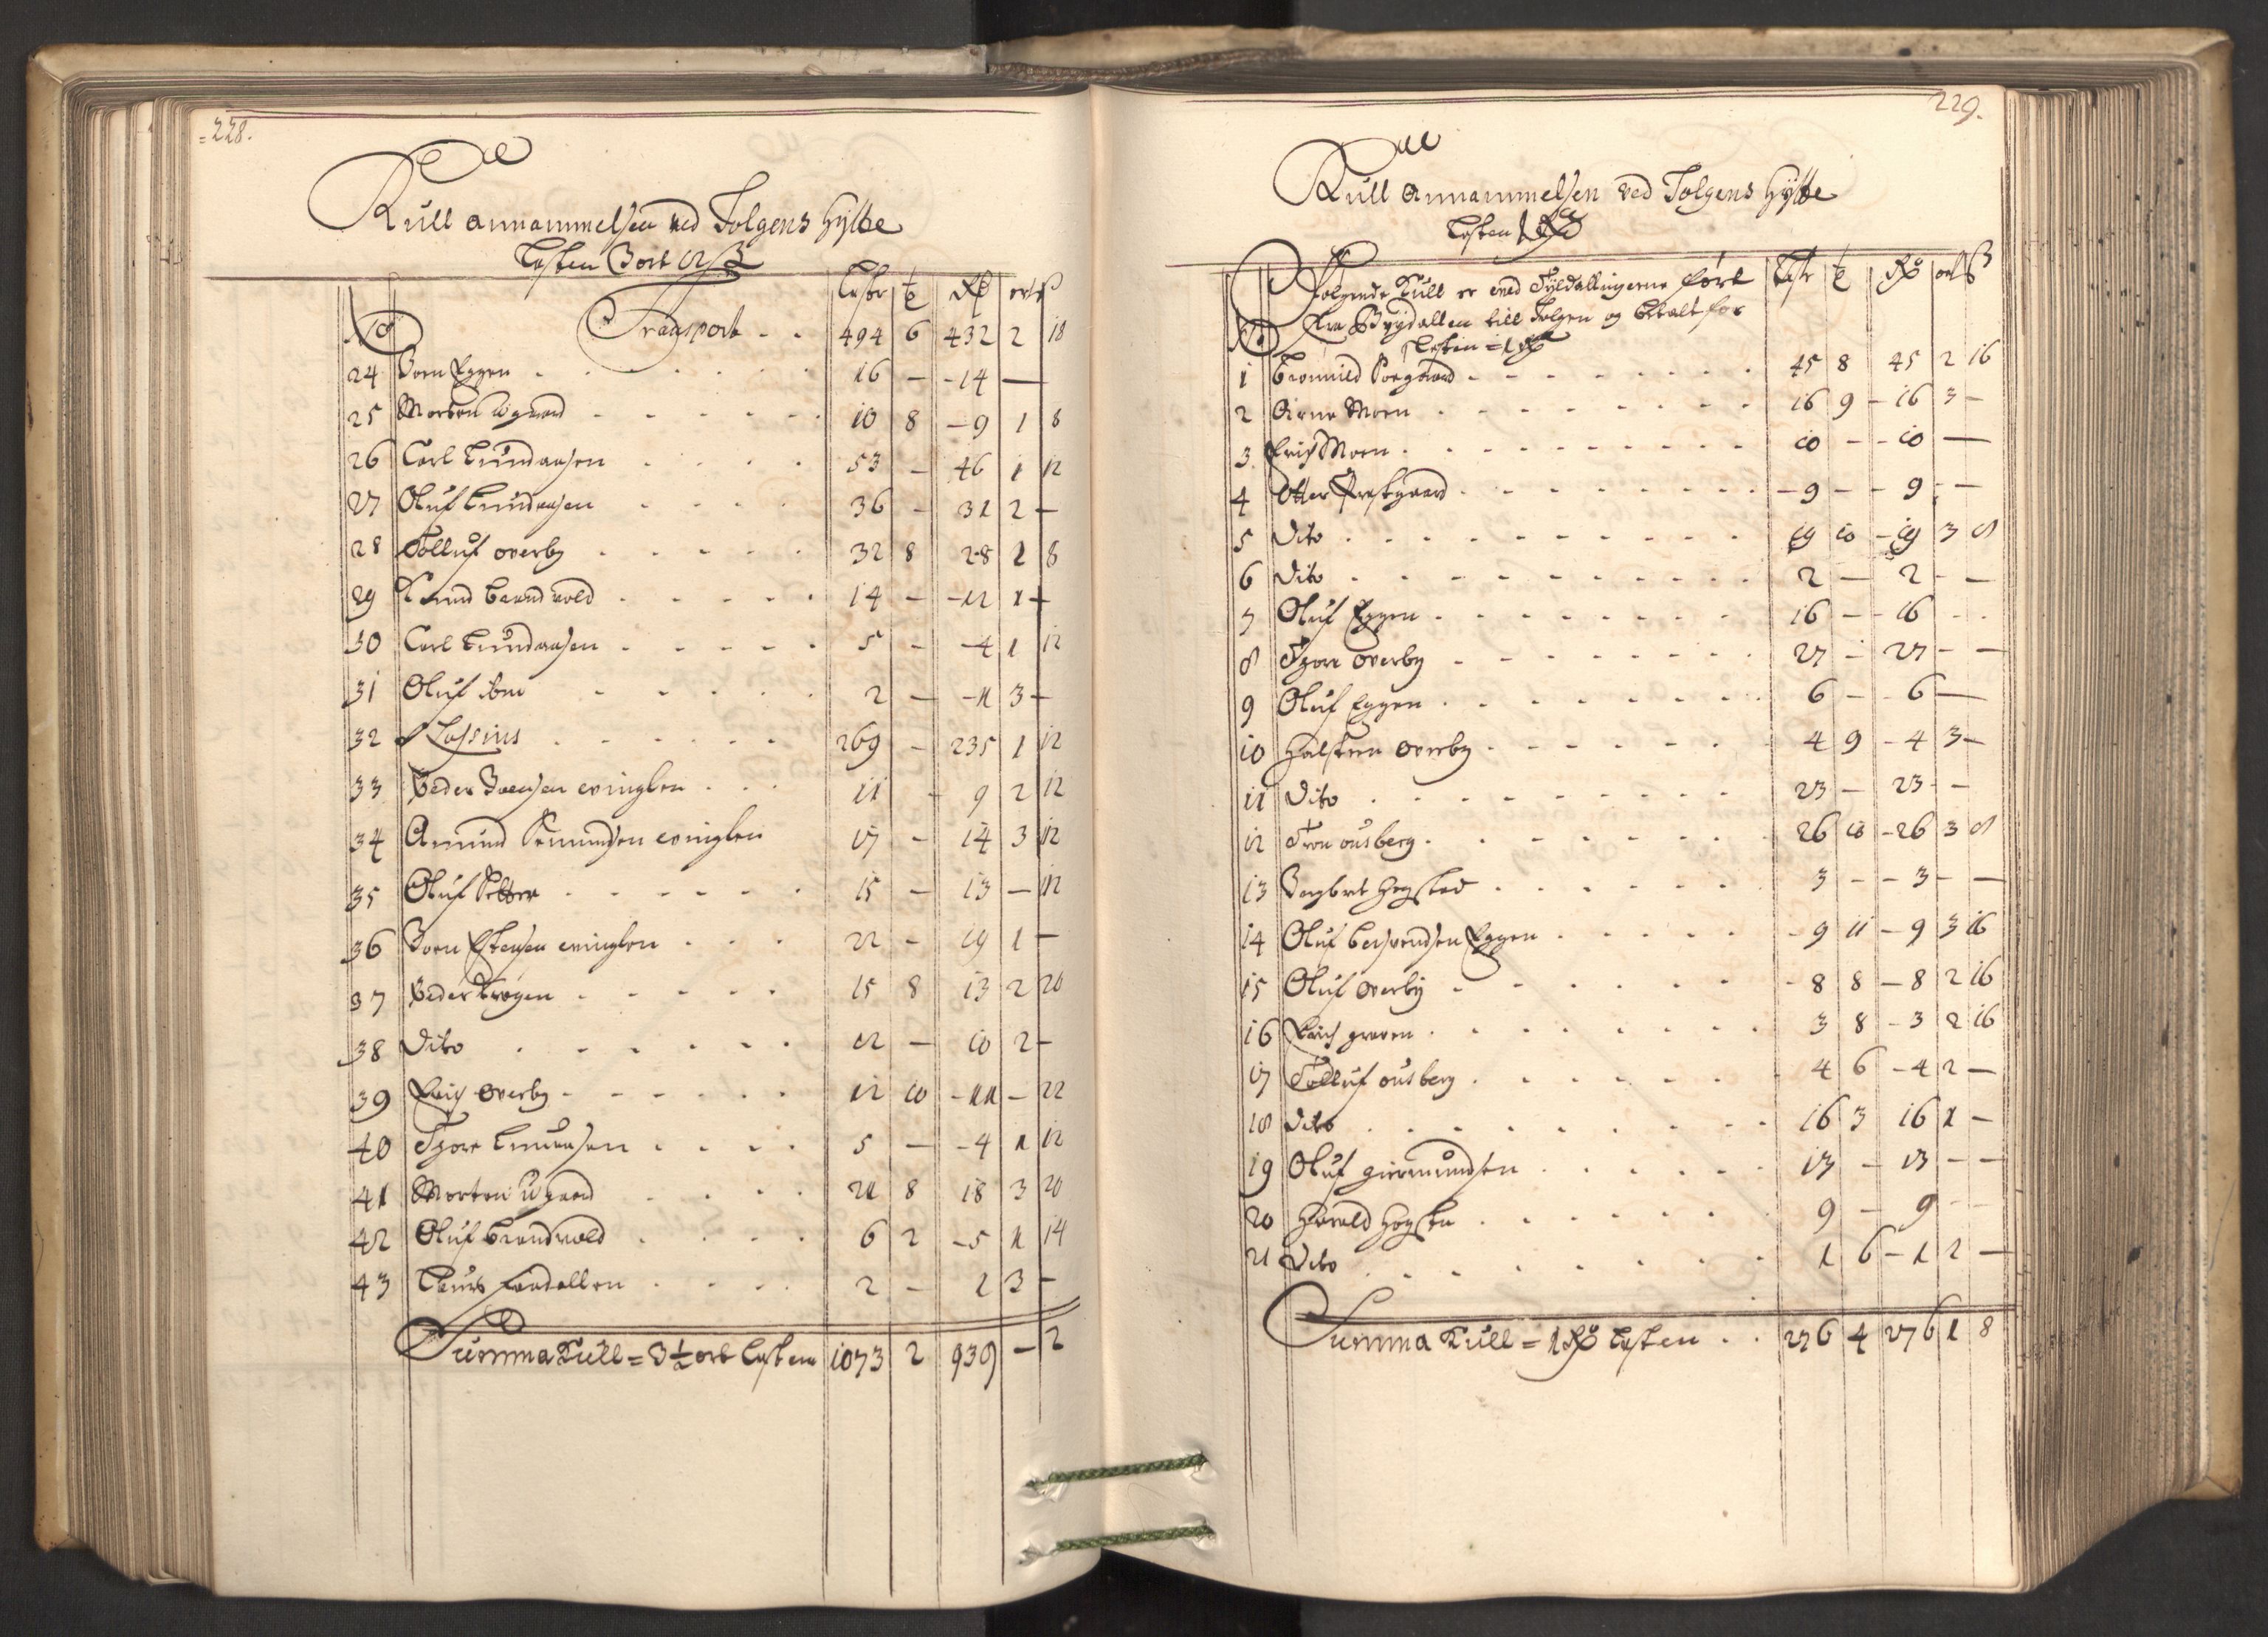 =228.
Kull annammelsen ved Tolgens hytte
Lesten 3 ort 12 ß
No Lester t Rd ort ß
Transport - - 494 6 432 2 18
24 Joen Eggen 16 — -14 —
25 Morten wgaard 10 8 -9 1 8
26 Carl Knudaasen 53 - 46 1 12
27 Oluf Knudaasen 36 - 31 2 -
28 Tolluf overby 32 8 28 1 8
29 Knud brendvold 14 - -12 1 -
30 Carl Knudaasen 5 - -4 1 12
31 Oluf ibm 2 - -1 3 -
32 Lossius 269 - 235 1 12
33 Peder Joensen vinglen 11 - 9 2 12
34 Amund Semundsen vinglen 17 - 14 3 12
35 Oluf Setter 15 - 13 - 12
36 Joen Estensen vinglen 22 - 19 1 -
37 Peder Krogen 15 8 13 2 20
38 Dito 12 - 10 2 -
39 Erich overby 12 10 -11 - 22
40 Tore Knudaasen 5 - -4 1 12
41 Morten wgaard 21 8 18 3 20
42 Oluf brendvold 6 2 -5 1 14
43 Laurs 2 - 1 3 -
Summa Kull = 3½ ort Lesten 1073 2 939 - 2
229.
Kull annammelsen ved Tolgens hytte
Lesten 1 Rd
Følgende Kull er med Tyldallingerne ført Lester t Rd ort ß
No fra Brydallen till Tolgen og betalt for
Lesten = 1 Rd
1 45 8 45 2 16
2 Arne Moen 16 9 - 16 3 -
3 Erich Moen 10 - - 10 —
4 Otter Prestgaard - 9 - - 9 - -
5 Dito 19 10 - 19 3 8
6 Dito 2 - 2 - -
7 Oluf Eggen 16 - - 16 - -
8 Tore overby 27 - 27 - -
9 Oluf Eggen 6 - - 6 —
10 Halsten overby 4 9 - 4 3 -
11 Dito 23 - 23 - -
12 Tron ousberg 26 10 - 26 3 8
13 Ingbret Hogstad 3 - - 3 - -
14 Oluf bersvendsen Eggen - 9 11 - 9 3 16
15 Oluf overby - 8 8 - 8 2 16
16 Erich graven 3 8 - 3 2 16
17 Tolluf ousberg 4 6 - 4 2 -
18 Dito 16 3 16 1 -
19 Oluf giermundsen 13 - 13 - -
20 Harald Hogsta 9 - 9 - -
21 Dito 1 6 - 1 2 -
Summa Kull = 1 Rd Lesten - - 276 4 276 1 8